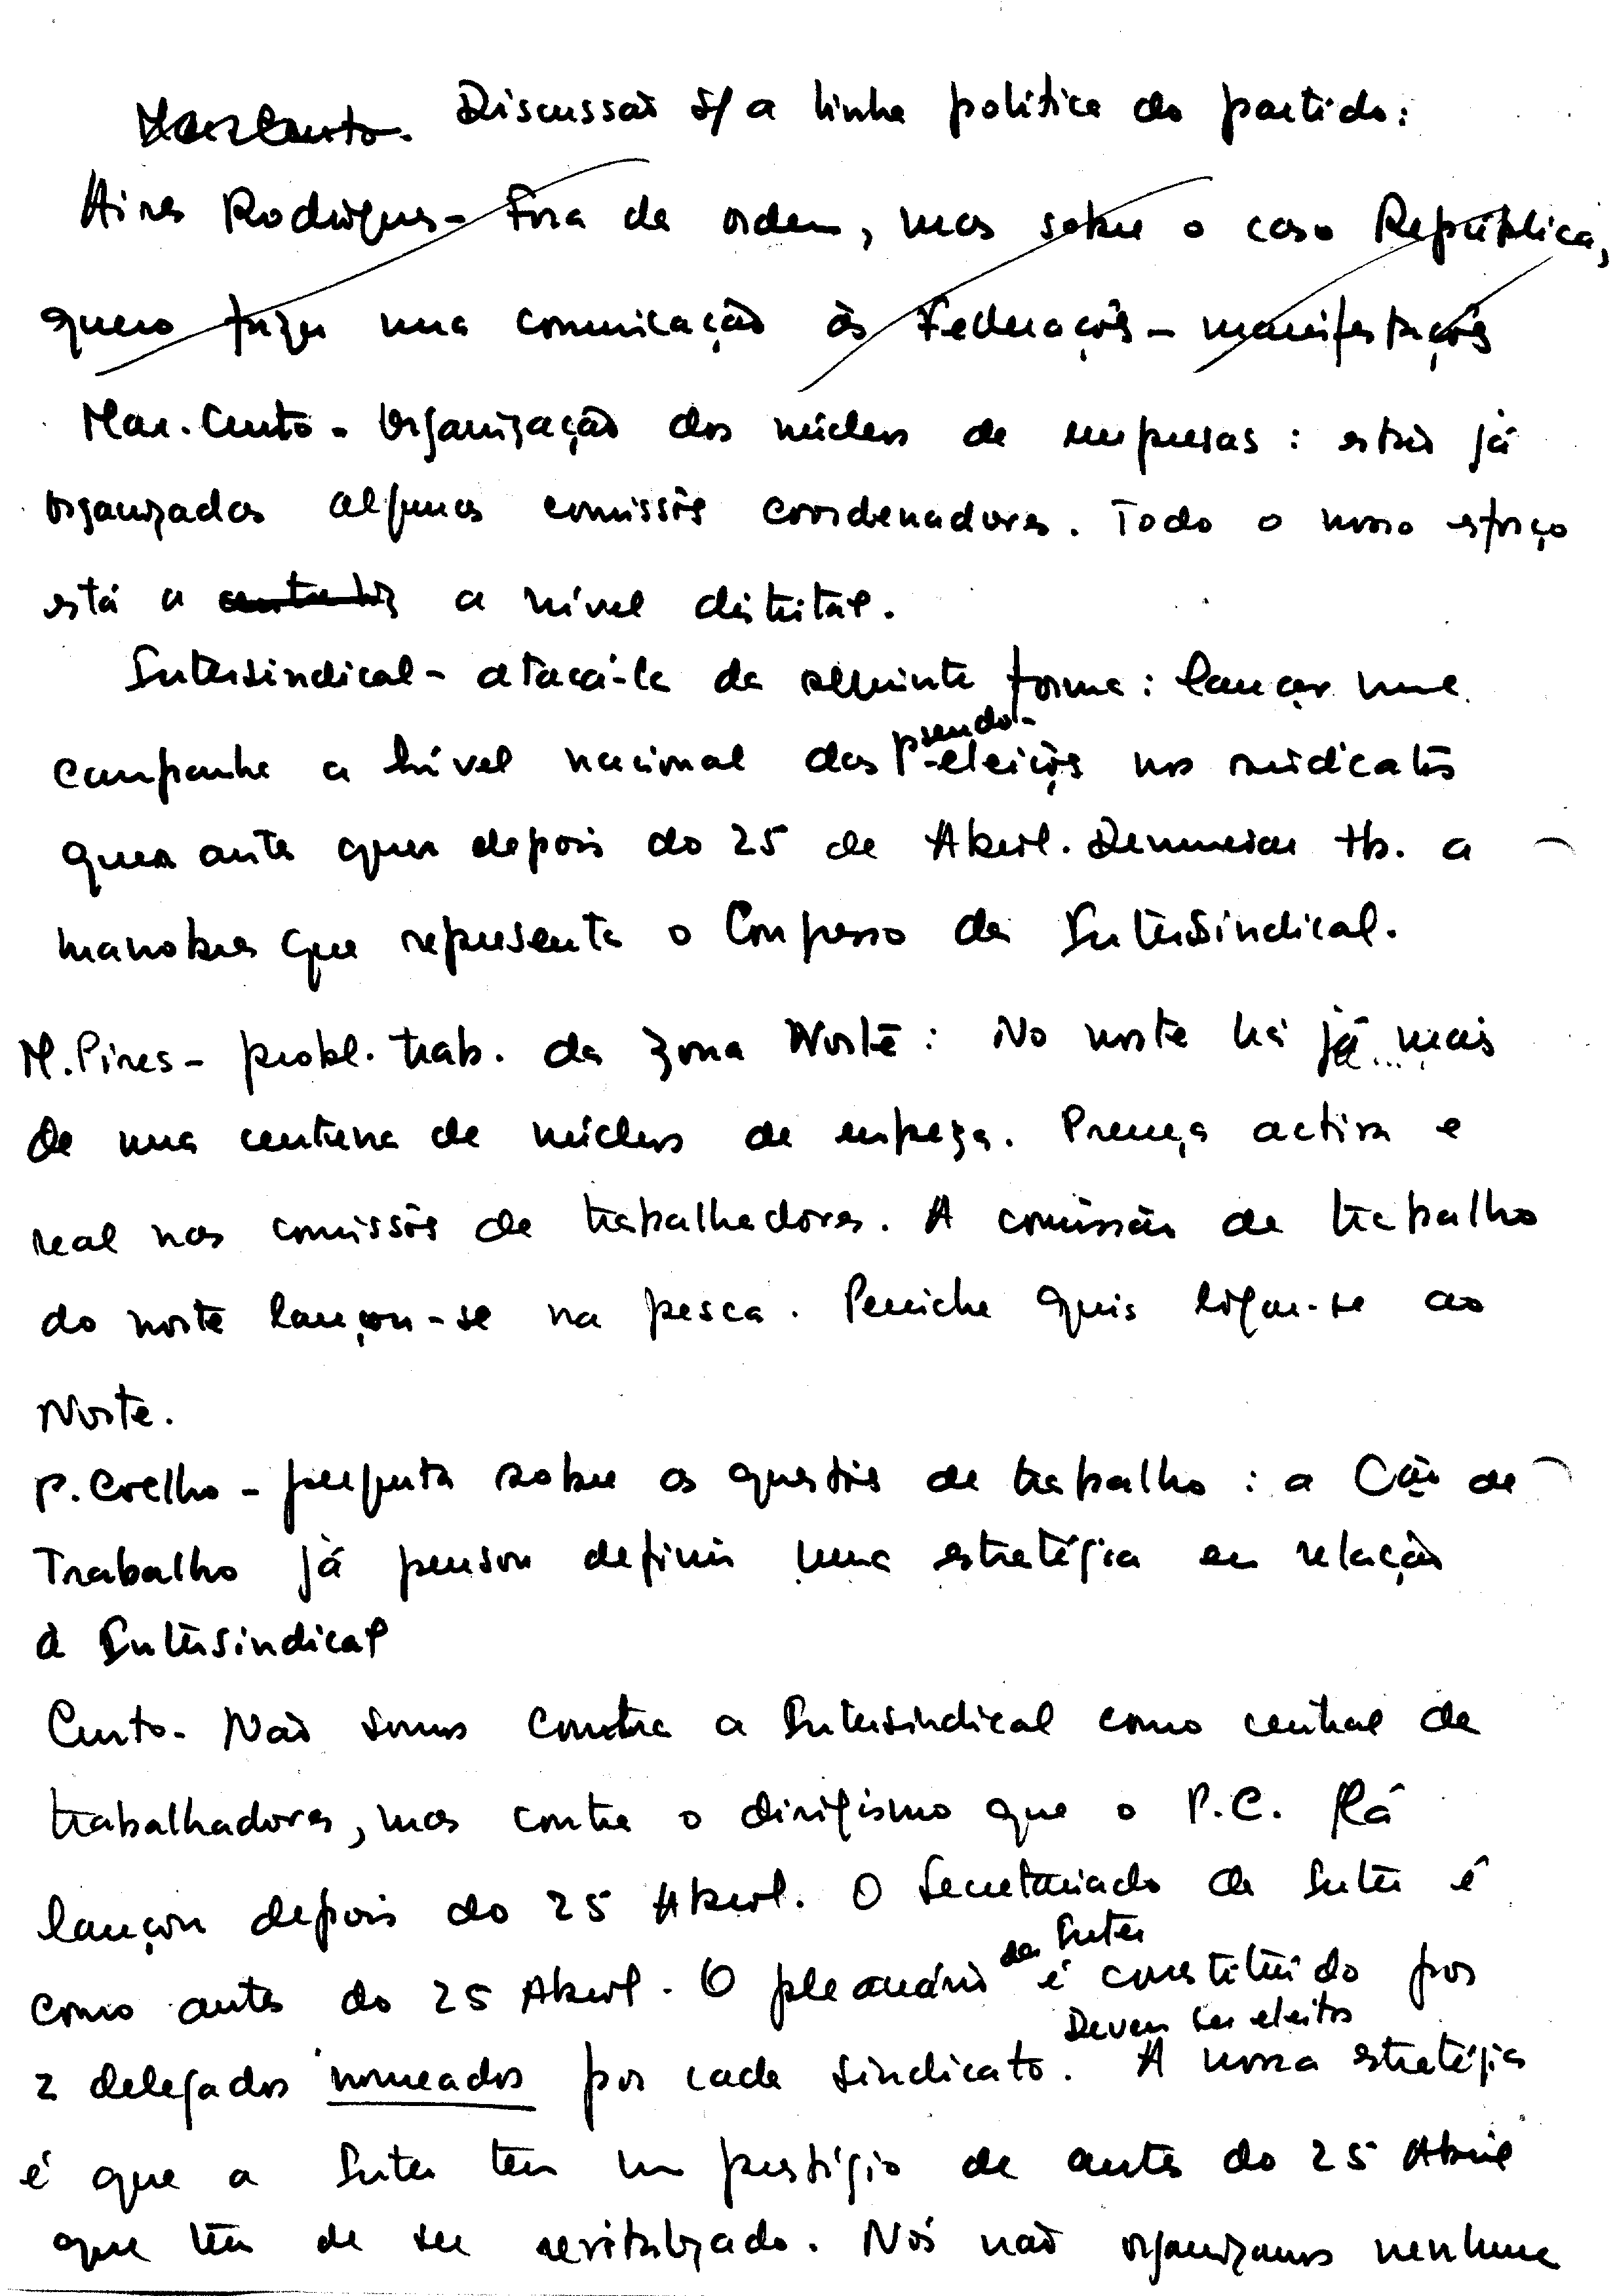 Mar Cunto. Discussão s/ a linha política do partido:
Aires Rodrigues - Fora da ordem, mas sobre o caso República,
quero fazer uma comunicação às Federações - manifestações
Mar. Cunto - Organização dos núcleos de empresas: estão já
organizadas algumas comissões coordenadoras. Todo o nosso esforço
está a a nível distrital.
Intersindical - atacá-la da seguinte forma: lançar uma
campanha a nível nacional das pseudo-eleições nos sindicatos
quer antes quer depois do 25 de Abril. Denunciar tb. a
manobra que representa o Congresso da Intersindical.
M. Pires - probl. trab. da zona Norte: No norte há já mais
de uma centena de núcleos de empeza. Presença activa e
real nas comissões de trabalhadores. A comissão de trabalho
do norte lançou-se na pesca. Peniche quis ligar-se ao
Norte.
P. Coelho - pergunta sobre as questões de trabalho: a Cão de
Trabalho já pensou definir uma estratégia em relação
à Intersindical
Cunto - Não somos contra a Intersindical como central de
trabalhadores, mas contra o dirigismo que o P.C. lá
lançou depois do 25 Abril. O Secretariado da Inter é
como antes do 25 Abril. O plenário da Inter é constituído por
2 delegados nomeados por cada sindicato. Devem ser eleitos A nossa estratégia
é que a Inter tem um prestígio de antes do 25 Abril
que tem de ser revitalizado. Nós não organizamos nenhuma